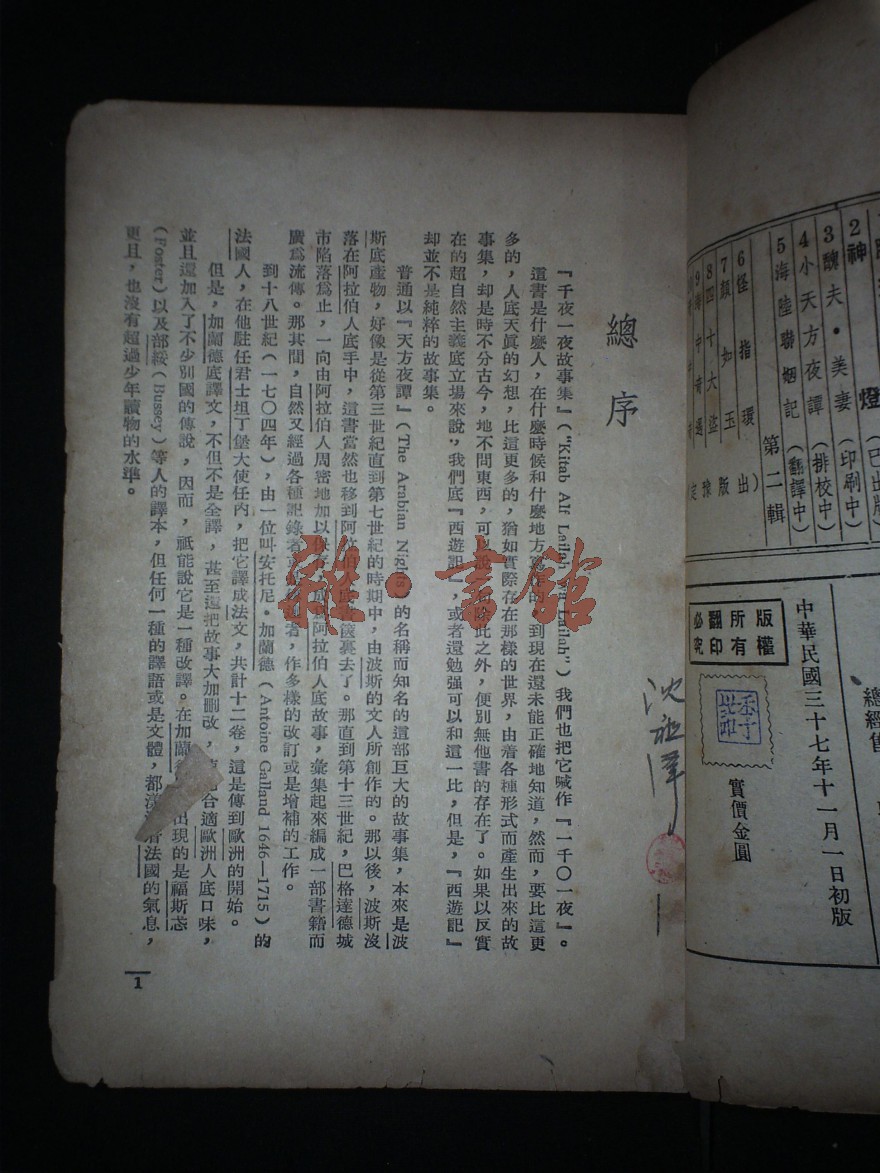 總序
『千夜一夜故事集』("Kitab Alf Lailah Wa Lailah")我們也把它喊作『一千〇一夜』。
這書是什麼人，在什麼時候和什麼地方寫作的，到現在還未能正確地知道，然而，要比這更
多的，人底天眞的幻想，比這更多的，猶如實際存在那樣的世界，由着各種形式而產生出來的故
事集，却是時不分古今，地不問東西，可以說，除此之外，便別無他書的存在了。如果以反實
在的超自然主義底立場來說，我們底『西遊記』，或者還勉强可以和這一比，但是，『西遊記』
却並不是純粹的故事集。
普通以『天方夜譚』(The Arabian Nights)的名稱而知名的這部巨大的故事集，本來是波
斯底產物，好像是從第三世紀直到第七世紀的時期中，由波斯的文人所創作的。那以後，波斯沒
落在阿拉伯人底手中，這書當然也移到阿拉伯人底書篋裏去了。那直到第十三世紀，巴格達德城
市陷落爲止，一向由阿拉伯人周密地加以保存，成爲阿拉伯人底故事，彙集起來編成一部書籍而
廣爲流傳。那其間，自然又經過各種記錄者或 者，作多樣的改訂或是增補的工作。
到十八世紀(一七〇四年)，由一位叫安托尼·加蘭德(Antoine Galland 1646—1715)的
法國人，在他駐任君士坦丁堡大使任內，把它譯成法文，共計十二卷，這是傳到歐洲的開始。
但是，加蘭德底譯文，不但不是全譯，甚至還把故事大加刪改，使 合適歐洲人底口味，
並且還加入了不少別國的傳說，因而，祇能說它是一種改譯。在加蘭德 出現的是福斯忒
(Foster)以及部綏(Bussey)等人的譯本，但任何一種的譯語或是文體，都 着法國的氣息，
更且，也沒有超過少年讀物的水準。
1
沈祖澤
雜·書館
2神 燈(已出版)
3醜夫·美妻(印刷中)
4小天方夜譚(排校中)
5海陸聯姻記(翻譯中)
第二輯
6怪指環
7顏如玉
8四十大盜
出版豫定
版權所有
翻印必究
中華民國三十七年十一月一日初版
實價金圓
總經售